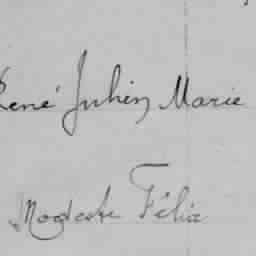 René Julien Marie
Modeste Félix